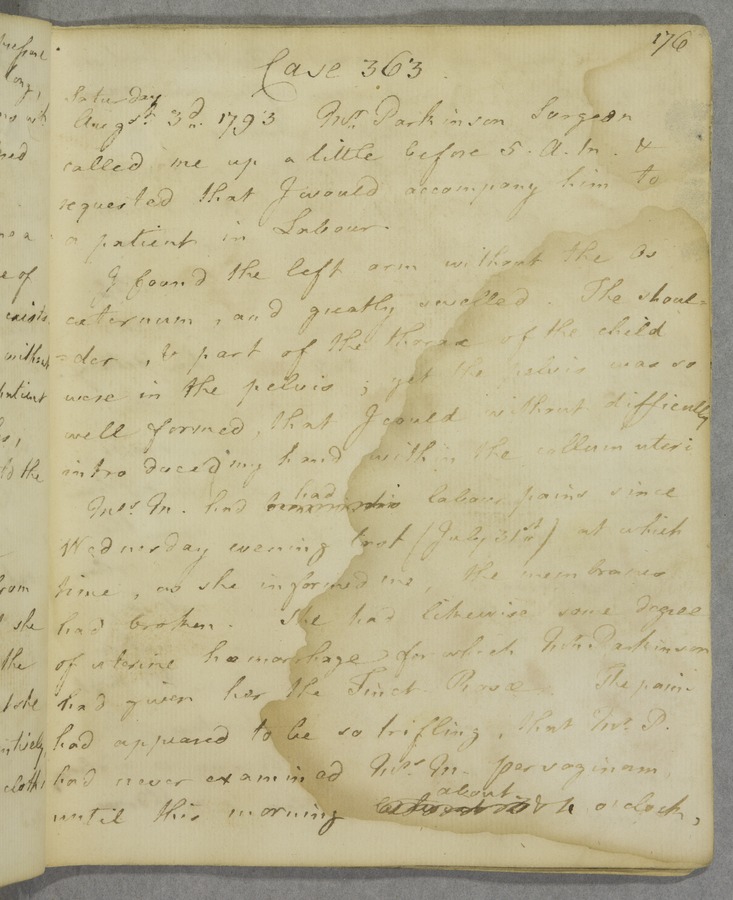 176
Case 363.
Saturday
Augst. 3d. 1793 Mr. Parkinson Surgeon
called me up a little before 5. A.M. &
requested that I would accompany him to
a patient in Labour.
I found the left arm without the Os
externum, and greatly swelled. The shoul=
=der, & part of the thorax of the child
were in the pelvis; yet the pelvis was so
well formed, that I could without difficulty
introduced my hand within the collum uteri
Mrs. M. had had labour pains since
Wednesday evening last (July 31st) at which
time, as she informed me, the membranes
had broken. She had likewise some degree
of uterine hæmorrhage for which Mr. Parkinson
had given her the Tinct. Rosæ. The pains
had appeared to be so trifling, that Mr. P.
had never examined Mrs. M. per vaginam,
until this morning about o'clock,